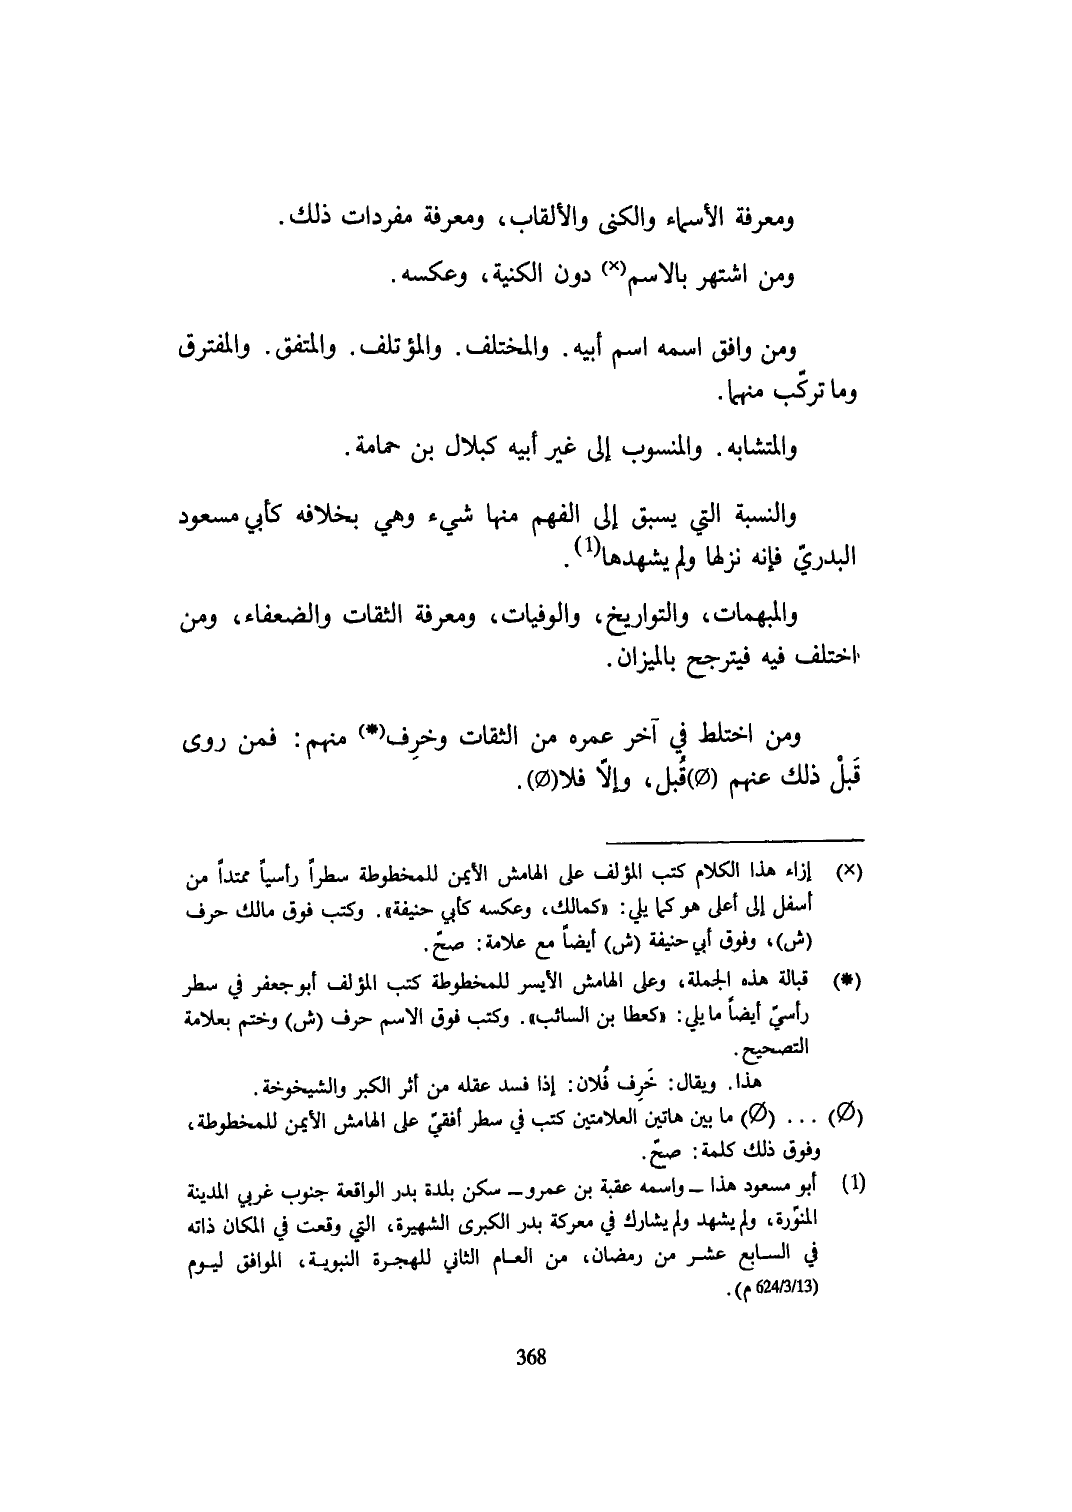 ومعرفة الأسماء والكنى والألقاب، ومعرفة مفردات ذلك.
ومن اشتهر بالاسم(×) دون الكنية، وعكسه.
ومن وافق اسمه اسم أبيه. والمختلف. والمؤتلف. والمتفق. والمفترق
وما تركّب منهما.
والمتشابه. والمنسوب إلى غير أبيه كبلال بن حمامة.
والنسبة التي يسبق إلى الفهم منها شيء وهي بخلافه كأبي مسعود
البدريّ فإنه نزلها ولم يشهدها(1).
والمبهمات، والتواريخ، والوفيات، ومعرفة الثقات والضعفاء، ومن
اختلف فيه فيترجح بالميزان.
ومن اختلط في آخر عمره من الثقات وخرِف(*) منهم: فمن روى
قَبلْ ذلك عنهم (Ø)قُبل، وإلاّ فلا(Ø).
(×) إزاء هذا الكلام كتب المؤلف على الهامش الأيمن للمخطوطة سطراً رأسياً ممتداً من
أسفل إلى أعلى هو كما يلي: «كمالك، وعكسه كأبي حنيفة». وكتب فوق مالك حرف
(ش)، وفوق أبي حنيفة (ش) أيضاً مع علامة: صحّ.
(*) قبالة هذه الجملة، وعلى الهامش الأيسر للمخطوطة كتب المؤلف أبو جعفر في سطر
رأسيّ أيضاً ما يلي: «كعطا بن السائب». وكتب فوق الاسم حرف (ش) وختم بعلامة
التصحيح.
هذا. ويقال: خَرِف فُلان: إذا فسد عقله من أثر الكبر والشيخوخة.
(Ø) ... (Ø) ما بين هاتين العلامتين كتب في سطر أفقيّ على الهامش الأيمن للمخطوطة،
وفوق ذلك كلمة: صحّ.
(1) أبو مسعود هذا ــ واسمه عقبة بن عمرو ــ سكن بلدة بدر الواقعة جنوب غربي المدينة
المنوّرة، ولم يشهد ولم يشارك في معركة بدر الكبرى الشهيرة، التي وقعت في المكان ذاته
في السابع عشر من رمضان، من العام الثاني للهجرة النبوية، الموافق ليوم
(624/3/13 م).
368